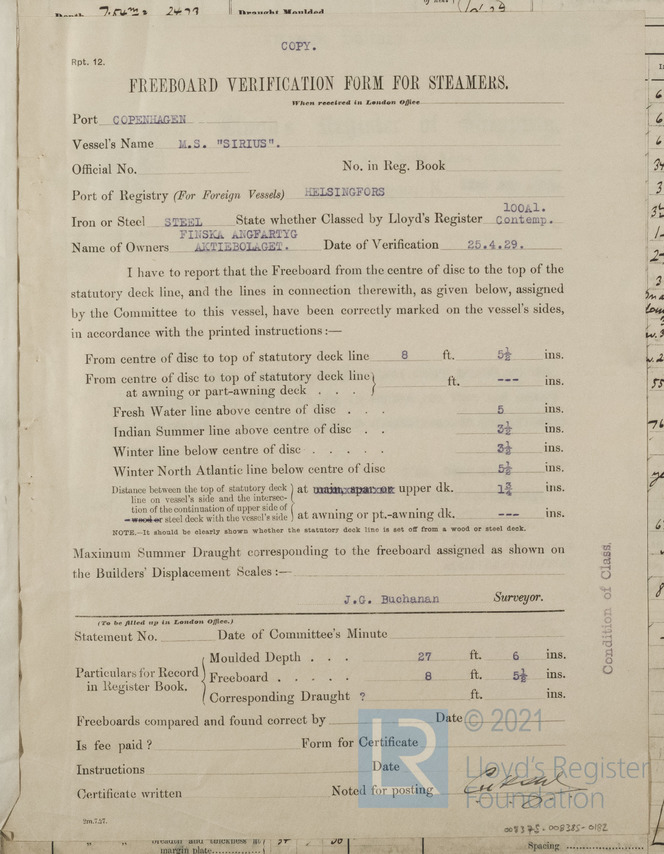 Depth 7.54m = 24.73 Draught Moulded
COPY.
Rpt. 12.
FREEBOARD VERIFICATION FORM FOR STEAMERS.
When received in London Office
Port COPENHAGEN
Vessel's Name M.S. "SIRIUS".
Official No. No. in Reg. Book
Port of Registry (For Foreign Vessels) HELSINGFORS
100A1.
Iron or Steel STEEL State whether Classed by Lloyd's Register Contemp.
FINSKA ANGFARTYG
Name of Owners AKTIEBOLAGET. Date of Verification 25.4.29.
I have to report that the Freeboard from the centre of disc to the top of the
statutory deck line, and the lines in connection therewith, as given below, assigned
by the Committee to this vessel, have been correctly marked on the vessel's sides,
in accordance with the printed instructions:—
From centre of disc to top of statutory deck line 8 ft. 5½ ins.
From centre of disc to top of statutory deck line
at awning or part-awning deck . . . ft. --- ins.
Fresh Water line above centre of disc . . . 5 ins.
Indian Summer line above centre of disc . . 3½ ins.
Winter line below centre of disc . . . . . 3½ ins.
Winter North Atlantic line below centre of disc 5½ ins.
Distance between the top of statutory deck
line on vessel's side and the intersec- at main, spar or upper dk. 1¾ ins.
tion of the continuation of upper side of
wood or steel deck with the vessel's side at awning or pt.-awning dk. --- ins.
NOTE.—It should be clearly shown whether the statutory deck line is set off from a wood or steel deck.
Maximum Summer Draught corresponding to the freeboard assigned as shown on
the Builders' Displacement Scales:—
J.G. Buchanan Surveyor.
(To be filled up in London Office.)
Statement No. Date of Committee's Minute
Moulded Depth . . . 27 ft. 6 ins.
Particulars for Record
in Register Book. Freeboard . . . . . 8 ft. 5½ ins.
Corresponding Draught ? ft. ins.
Freeboards compared and found correct by Date
Is fee paid ? Form for Certificate
Instructions Date
Certificate written Noted for posting
2m.7.27.
Condition of Class.
LR © 2021
Lloyd's Register
Foundation
008375-008385-0182
margin plate
Spacing